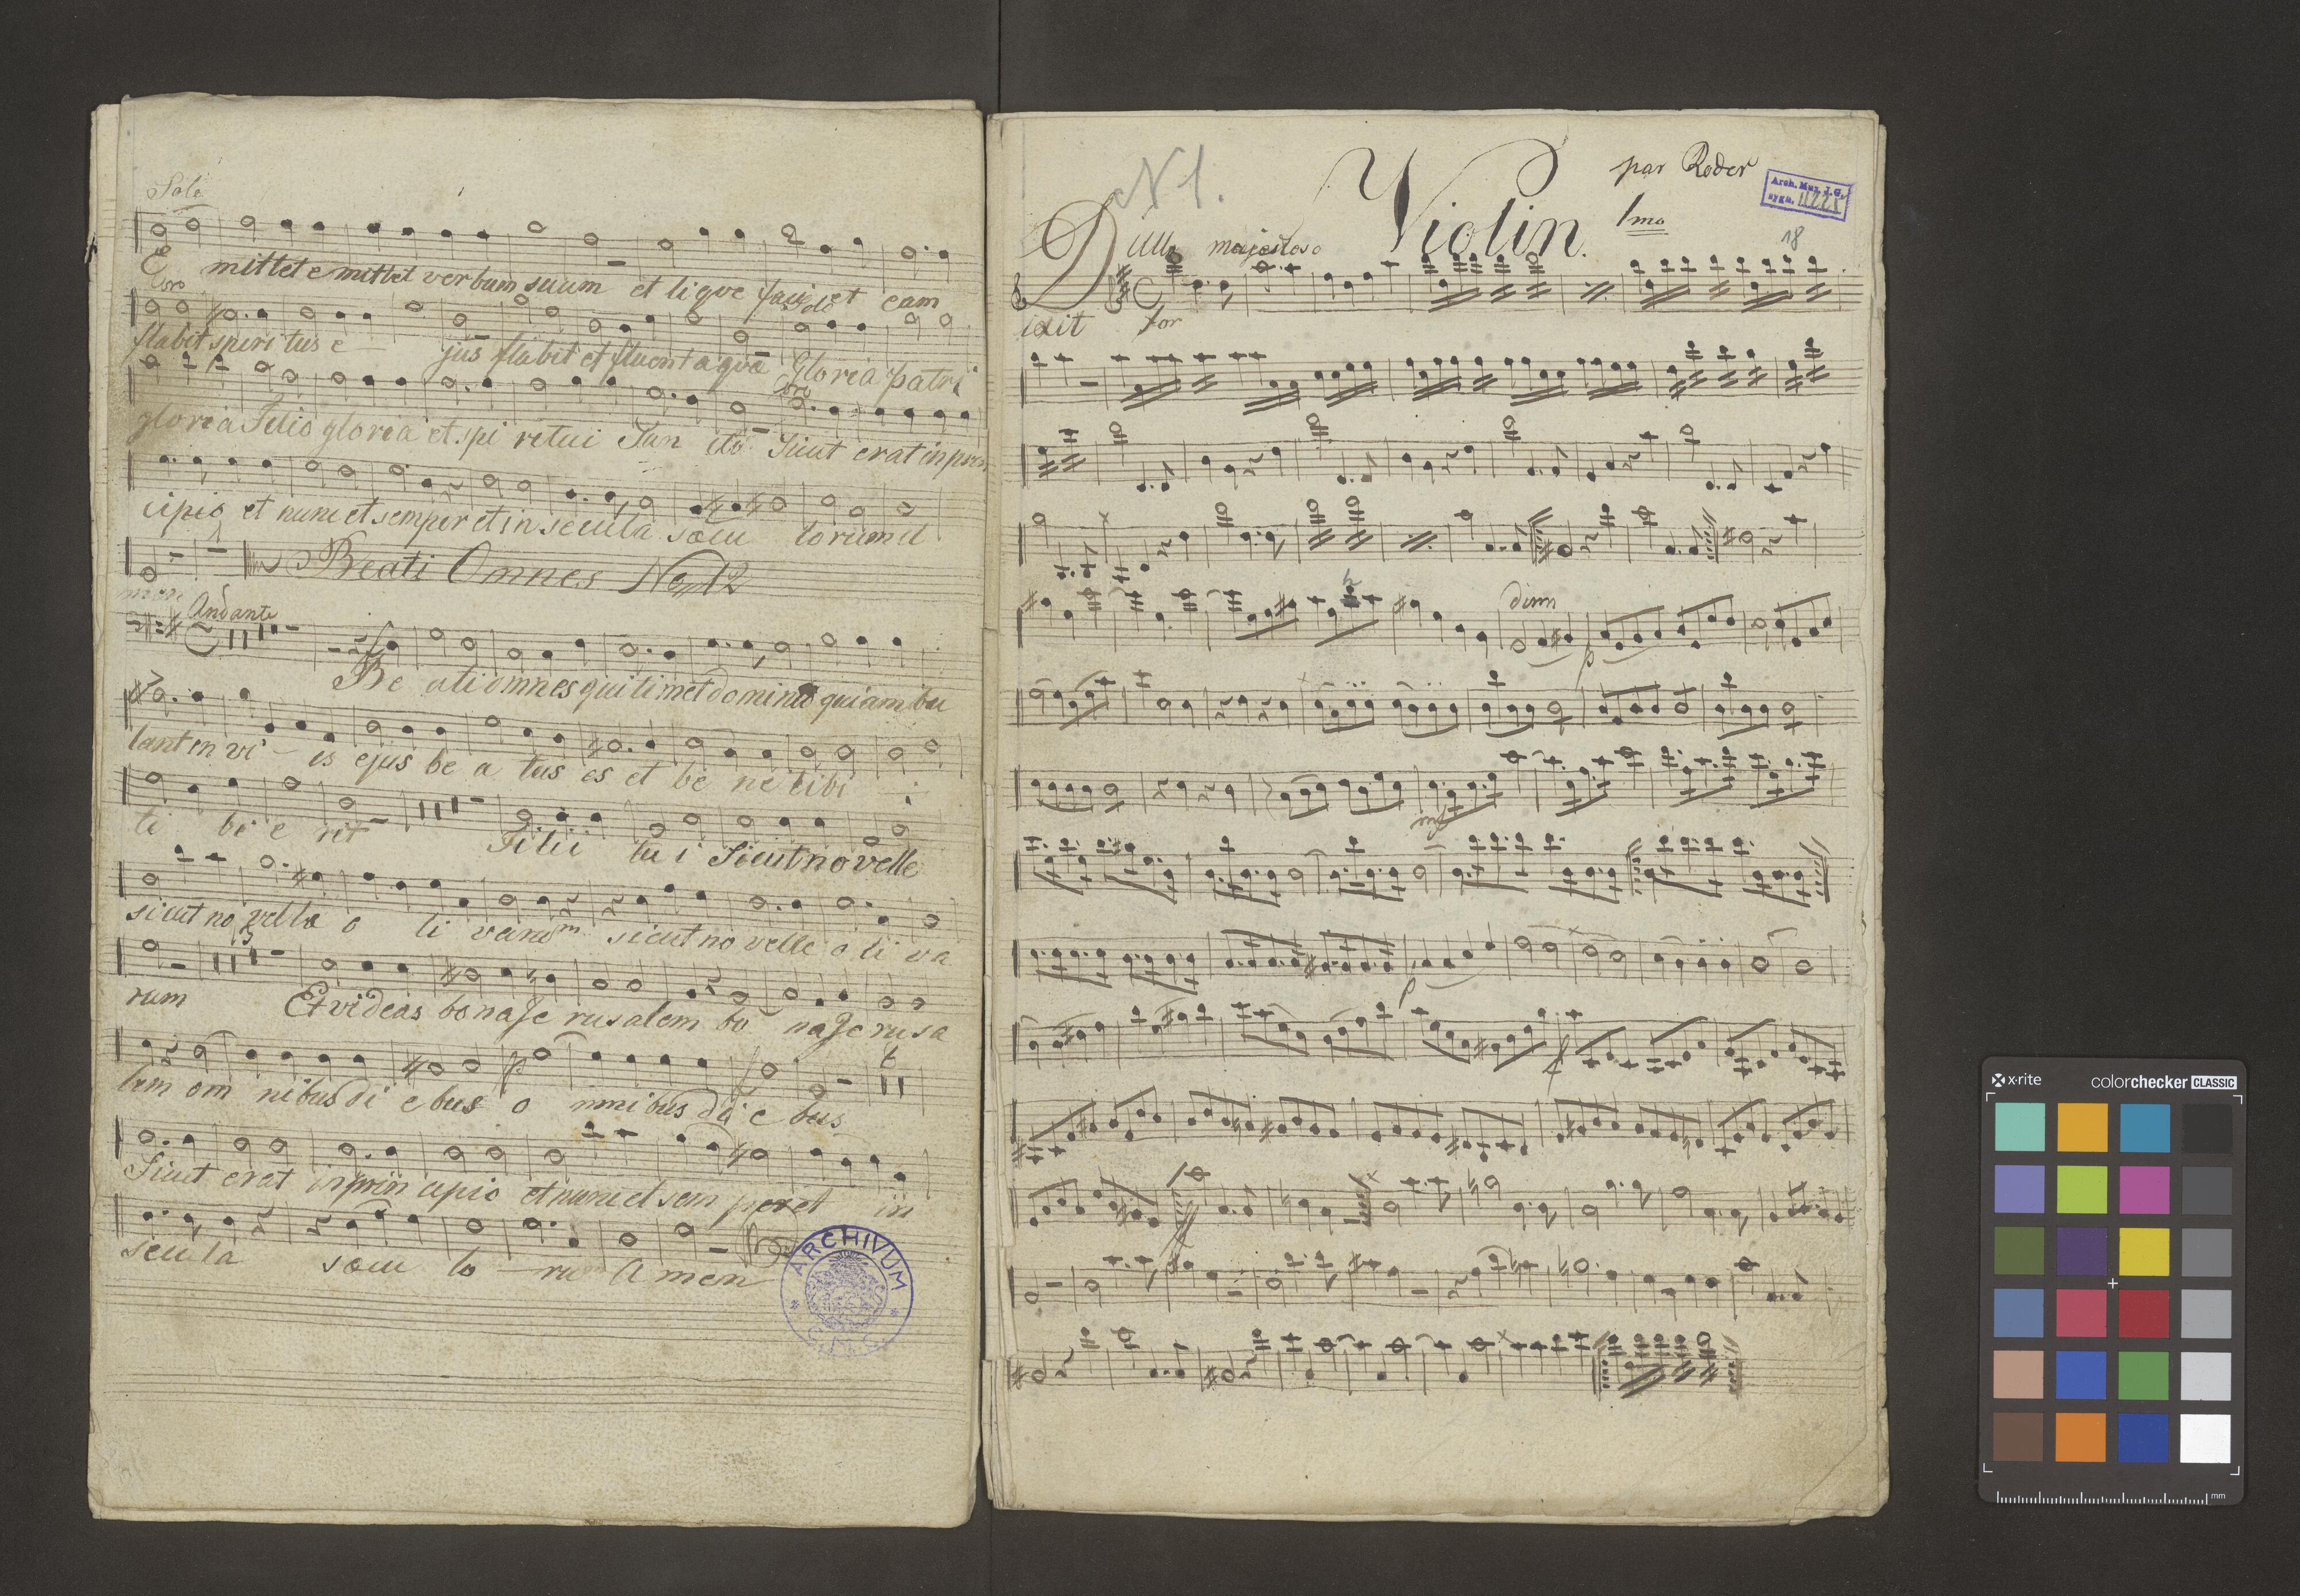 Solo
E mittet emittet verbum suum et lique faciet eam
Coro
Solo
flabit spiritus e jus flabit et fluent aquæ Gloria patri
Coro
gloria Filio gloria et spi ritui San cto Sicut erat in prin
cipio et nunc et semper et in secula sæcu lorum A
1
men
Beati Omnes No 12
Andante
Be ati omnes qui timet domino qui ambu
lant in vi is ejus be a tus es et be ne tibi
ti bi e rit Filii tu i Sicut no velle
sicut no vellæ o li varum sicut no velle o li va
rum Et videas bona Je rusalem bo na Je rusa
6
lem om nibus di ebus o mnibus di e bus
Sicut erat in prin cipio et nunc et sem per et in
secu la sæcu lo ru Amen
ARCHIVUM
N 1.
par Roder
Violin. 1mo
Arch. Muz. J. G.
sygn.
18
Dixit
majestoso
for
dim
p
mf
p
f
x-rite
colorchecker CLASSIC
mm